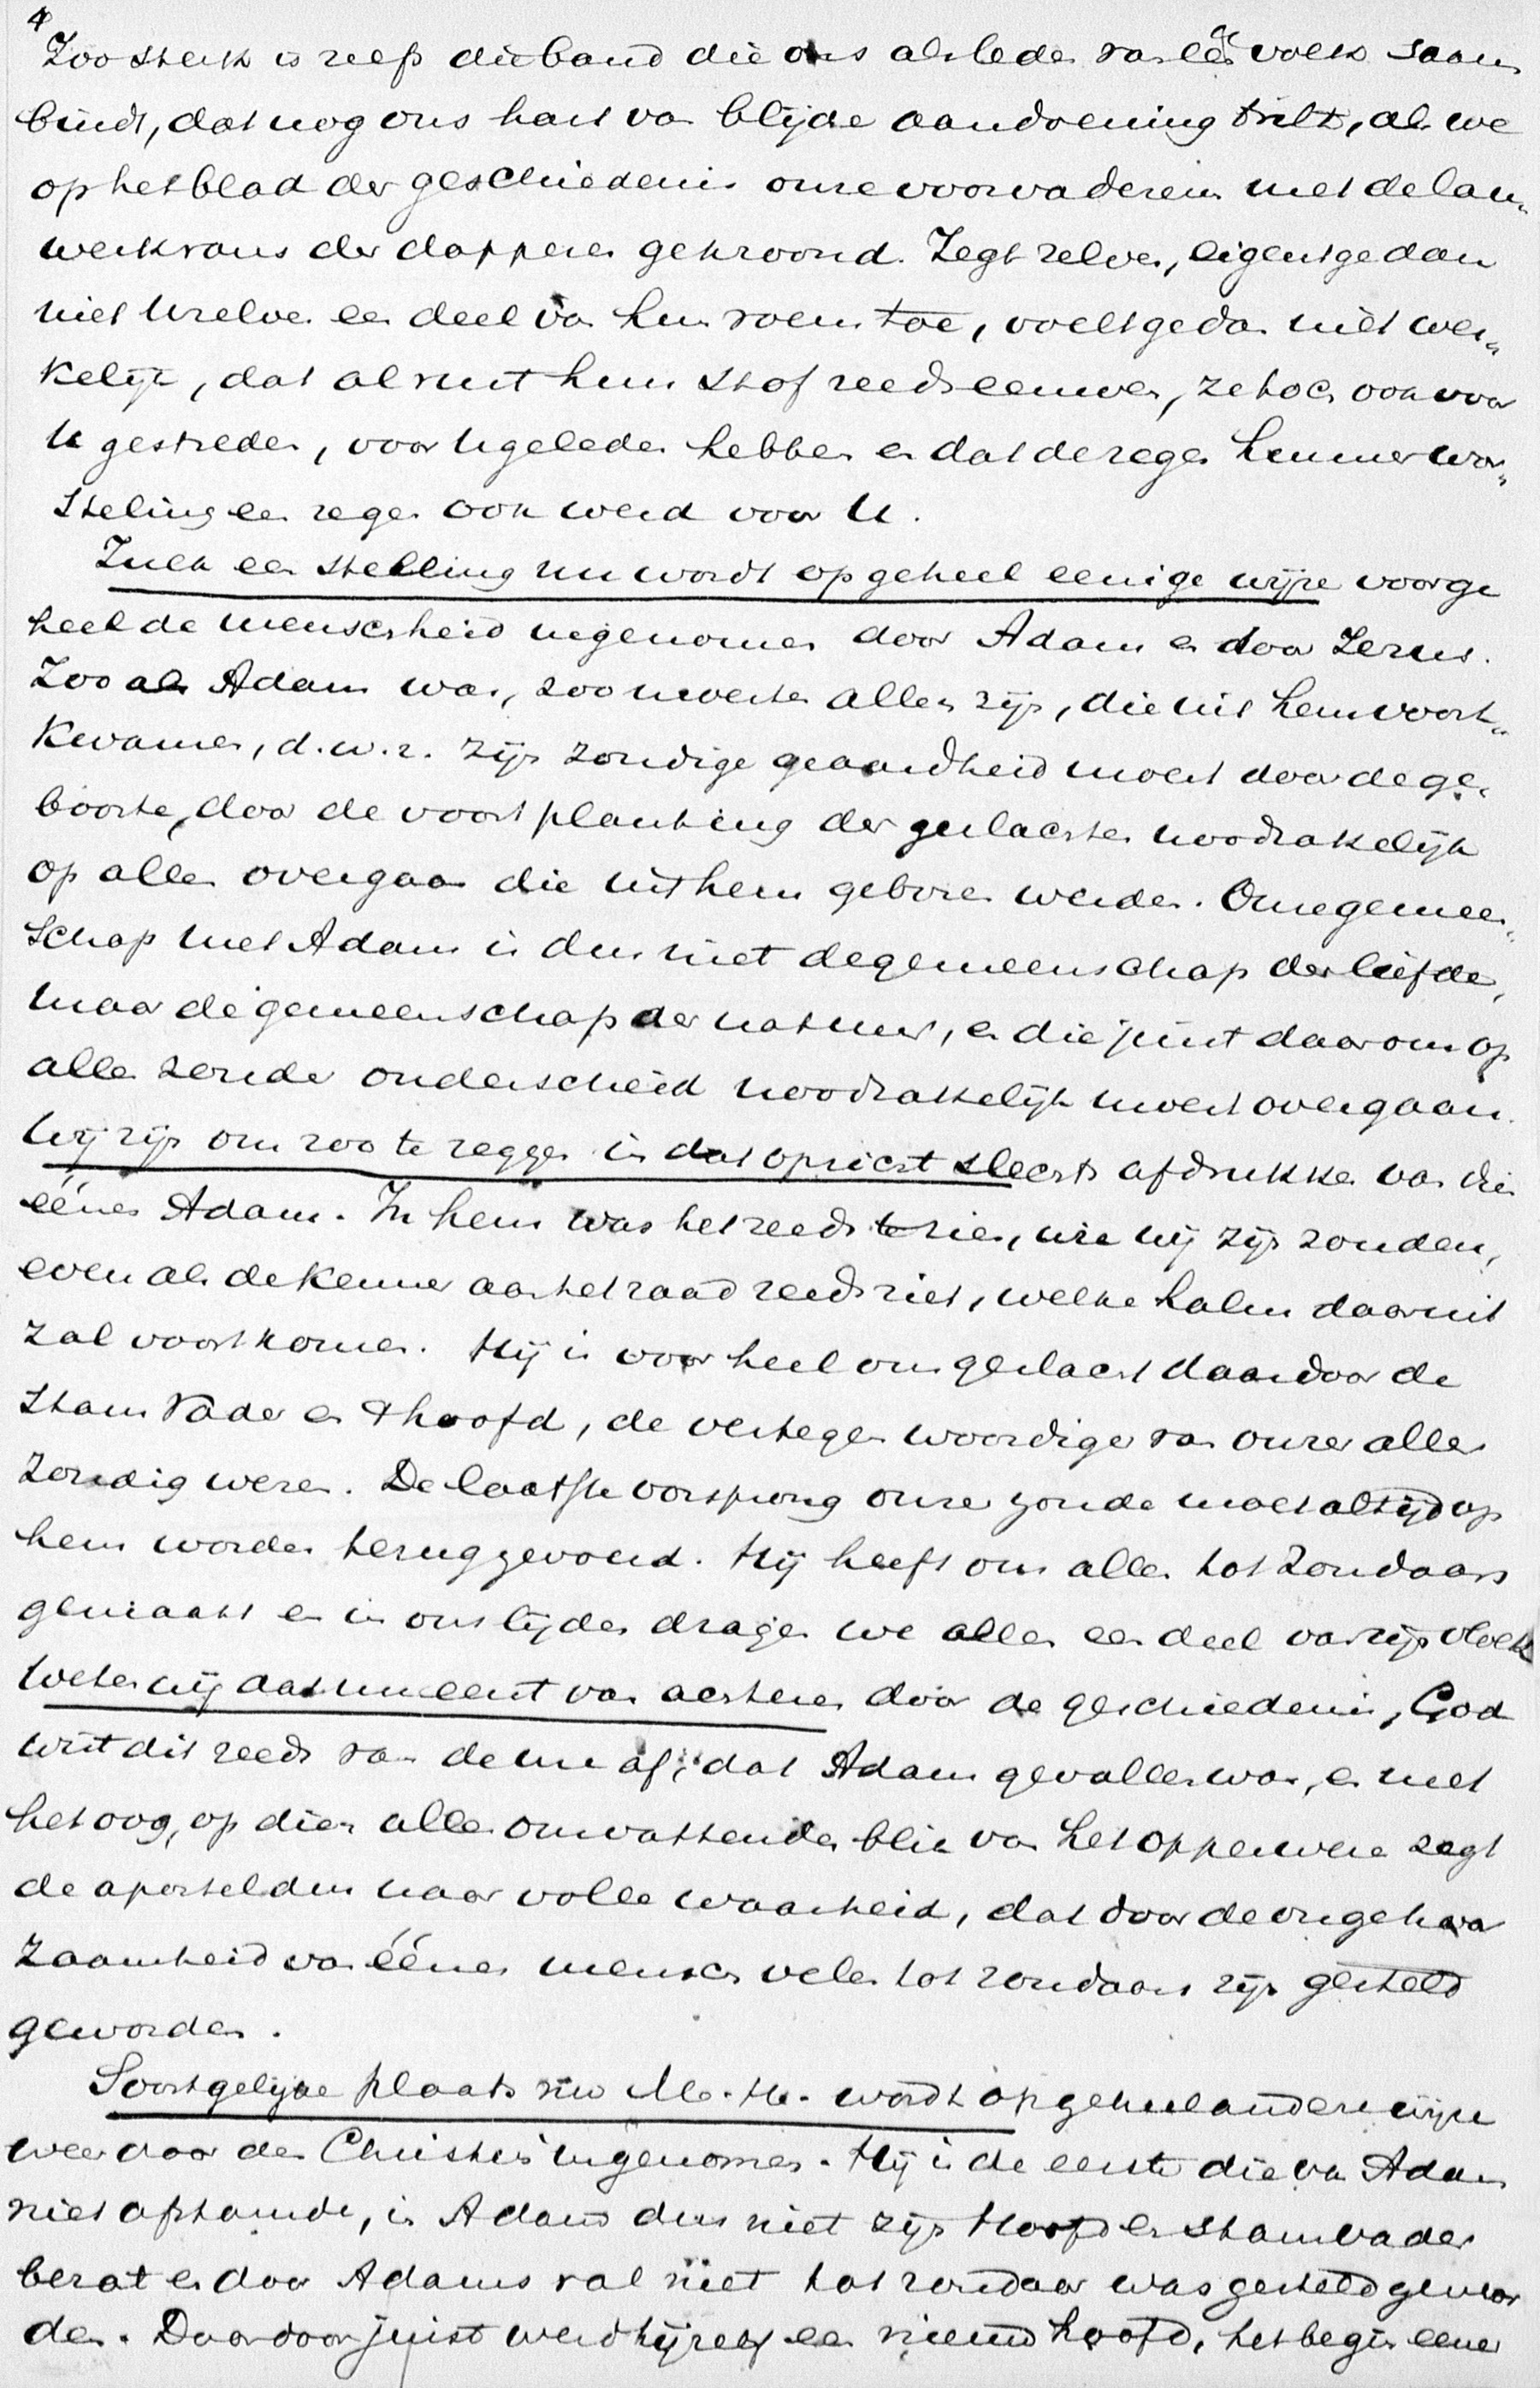 4
Zoo sterk is zelfs die band die ons als leden van één volk saam
bindt, dat nog ons hart van blijde aandoening trilt, als we
op het blad der geschiedenis onze voorvaderen met de lau„
werkrans der dapperen gekroond. Zegt zelven, eigent ge dan
niet Uzelven een deel van hun roem toe, voelt ge dan niet wer„
kelijk, dat al rust hun stof reeds eeuwen, ze toch ook voor
U gestreden, voor U geleden hebben en dat de zegen hunner wor„
steling een zegen ook werd voor U.
Zulk een stelling nu wordt op geheel eenige wijze voor ge
heel de menschheid ingenomen door Adam en door Jezus.
Zoo als Adam was, zoo moesten allen zijn, die uit hem voort„
kwamen, d.w.z. zijn zondige geaardheid moest door de ge„
boorte, door de voortplanting der geslachten noodzakelijk
op allen overgaan die uit hem geboren werden. Onze gemeen„
schap met Adam is dus niet de gemeenschap der liefde,
maar de gemeenschap der natuur, en die juist daarom op
allen zonder onderscheid noodzakelijk moest overgaan.
Wij zijn om zoo te zeggen in dat opzicht slechts afdrukken van dien
éénen Adam. In hem was het reeds te zien, wie wij zijn zouden,
even als de kenner aan het zaad reeds ziet, welke halm daaruit
zal voortkomen. Hij is voor heel ons geslacht daardoor de
Stam Vader en 't hoofd, de vertegenwoordiger van onzer aller
zondig wezen. De laatste oorsprong onzer zonde moet altijd op
hem worden teruggevoerd. Hij heeft ons allen tot zondaars
gemaakt en in ons lijden dragen we allen een deel van zijn vloek
Weten wij dat nu eerst van achteren door de geschiedenis, God
wist dit reeds van de ure af, dat Adam gevallen was, en met
het oog, op dien alles omvattenden blik van het opperwezen zegt
de apostel dus naar volle waarheid, dat door de ongehoor
zaamheid van éénen mensch velen tot zondaars zijn gesteld
geworden.
Soortgelijke plaats nu M. H. wordt op geheel andere wijze
weer door den Christus ingenomen. Hij is de eerste die van Adam
niet afstamde, in Adam dus niet zijn Hoofd en stamvader
bezat en door Adams val niet tot zondaar was gesteld gewor
den. Daardoor juist werd hij zelf een nieuw hoofd, het begin eener